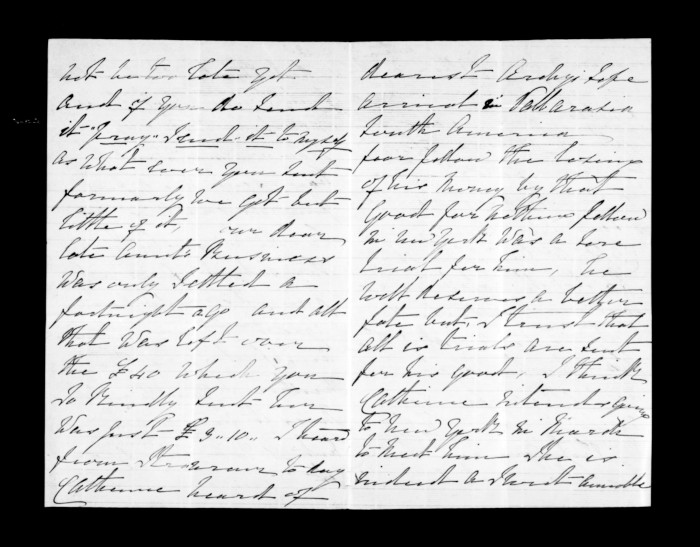 not be too late yet
and if you do send
it "pray" send it to myself
as what ever you sent
formerly we got but
little of it, our dear
late Aunt's Business
was only settled a
fortnight ago and all
that was left over
the £40 which you
so kindly sent her
was just £3"10" I heard
from to day
Catherine heard of
dearest Archy's safe
arrival in
South America
poor fellow the losing
of his money by that
good for nothing fellow
in New York was a sore
trial for him, he
well deserves a better
fate but, I trust that
all is trials are sent
for his good, I think
Catherine intends going
to New York in March
to meet him she is
indeed a sweet amiable